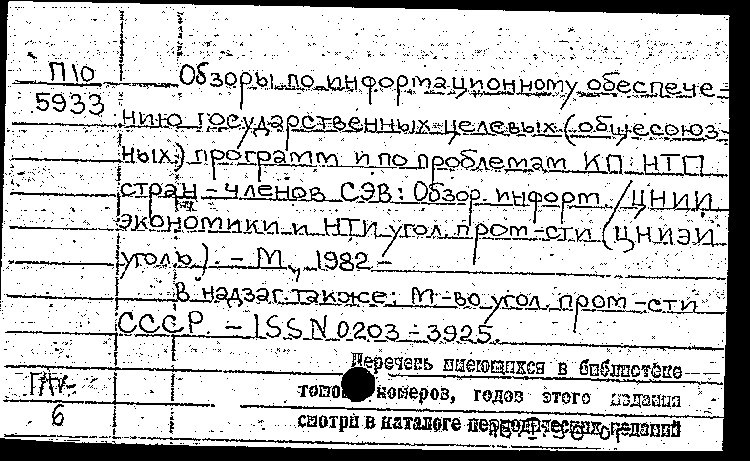 П10
5933
Обзоры по информационному обеспече-
нию государственных целевых (общесоюз-
ных) программ и по проблемам КП НТП
стран-членов СЭВ: Обзор. информ. / ЦНИИ
экономики и НТИ угол. пром-сти (ЦНИЭИ
уголь). - М., 1982 -
В надзаг. также: М-во угол. пром-сти
СССР. - ISSN 0203-3925.
Перечень имеющихся в библиотеке
томов номеров, годов этого издания
смотри в каталоге периодических изданий
6